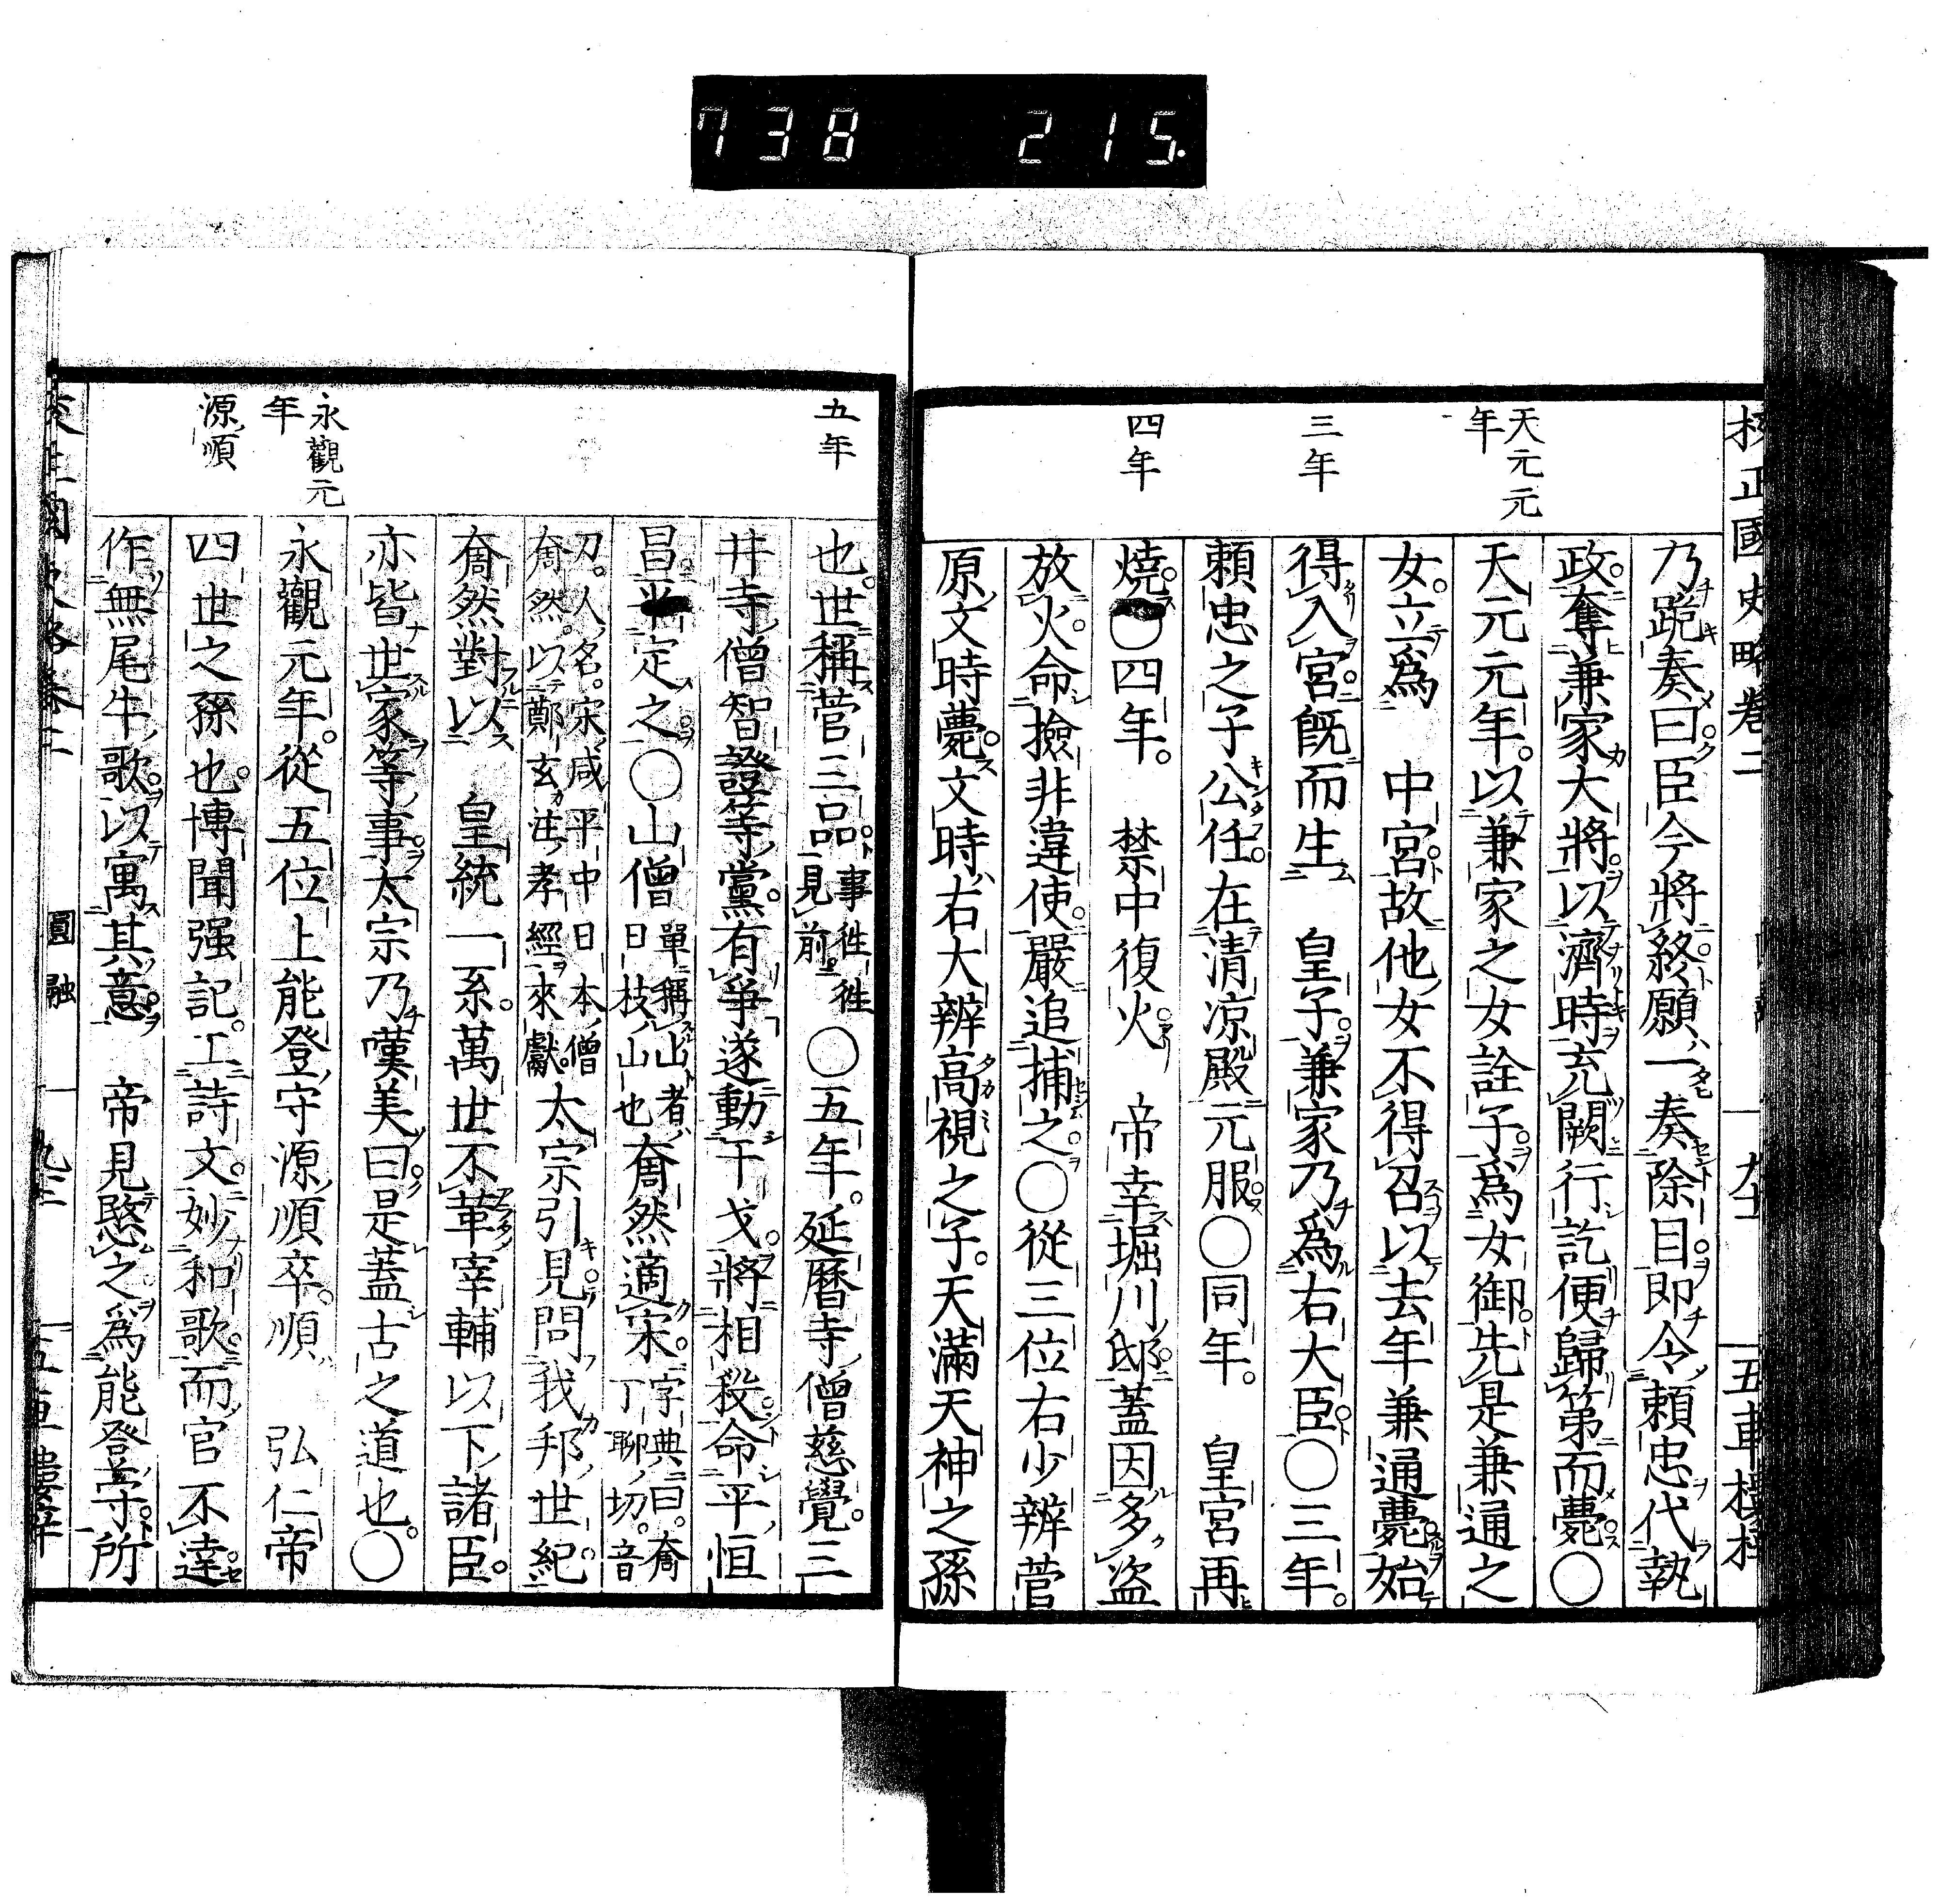 738 215.
校正國史略卷二
五車樓梓
天元元年
三年
四年
乃跪奏曰。臣今將終。願一奏除目。即令頼忠代執
政。奪兼家大將。以濟時充闕。行訖便歸第而薨。〇
天元元年。以兼家之女詮子。爲女御。先是兼通之
女。立爲 中宮。故他女不得召。以去年兼通薨。始
得入宮。既而生 皇子。兼家乃爲右大臣。〇三年。
頼忠之子公任。在清凉殿元服。〇同年。 皇宮再
燒。〇四年。 禁中復火。 帝幸堀川邸。蓋因多盜
放火。命撿非違使。嚴追捕之。〇從三位右少辨菅
原文時薨。文時、右大辨高視之子。天滿天神之孫
五年
永觀元年
源順
也。世稱菅三品。事徃徃見前。〇五年。延曆寺僧慈覺。三
井寺僧智證等黨。有爭。遂動干戈。將相殺。命平恒
昌平定之。〇山僧單稱山者、日枝山也奝然適宋。字典曰。奝丁聊切。音
刀。人名。宋咸平中日本僧奝然。以鄭玄註孝經來獻。太宗引見。問我邦世紀。
奝然對以 皇統一系。萬世不革。宰輔以下諸臣。
亦皆世家等事。太宗乃嘆美曰。是蓋古之道也。〇
永觀元年。從五位上能登守源順卒。順 弘仁帝
四世之孫也。博聞强記。工詩文。妙和歌。而官不達。
作無尾牛歌。以寓其意。 帝見愍之。爲能登守。所
圓融